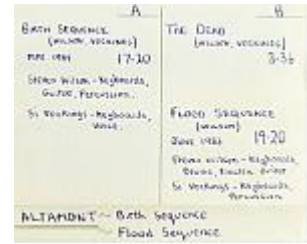 A
BIRTH SEQUENCE
(WILSON, VOCKINGS)
1983 17-20
Steven Wilson - Keyboards,
Guitar, Percussion.
Si Vockings - Keyboards,
Voice.
B
THE DEAD
(WILSON, VOCKINGS)
3-36
FLOOD SEQUENCE
(WILSON)
JUNE 1983 19-20
Steven Wilson - Keyboards,
Drums, Electric Guitar
Si Vockings - Keyboards,
Percussion
ALTAMONT ~ Birth Sequence
~ Flood Sequence